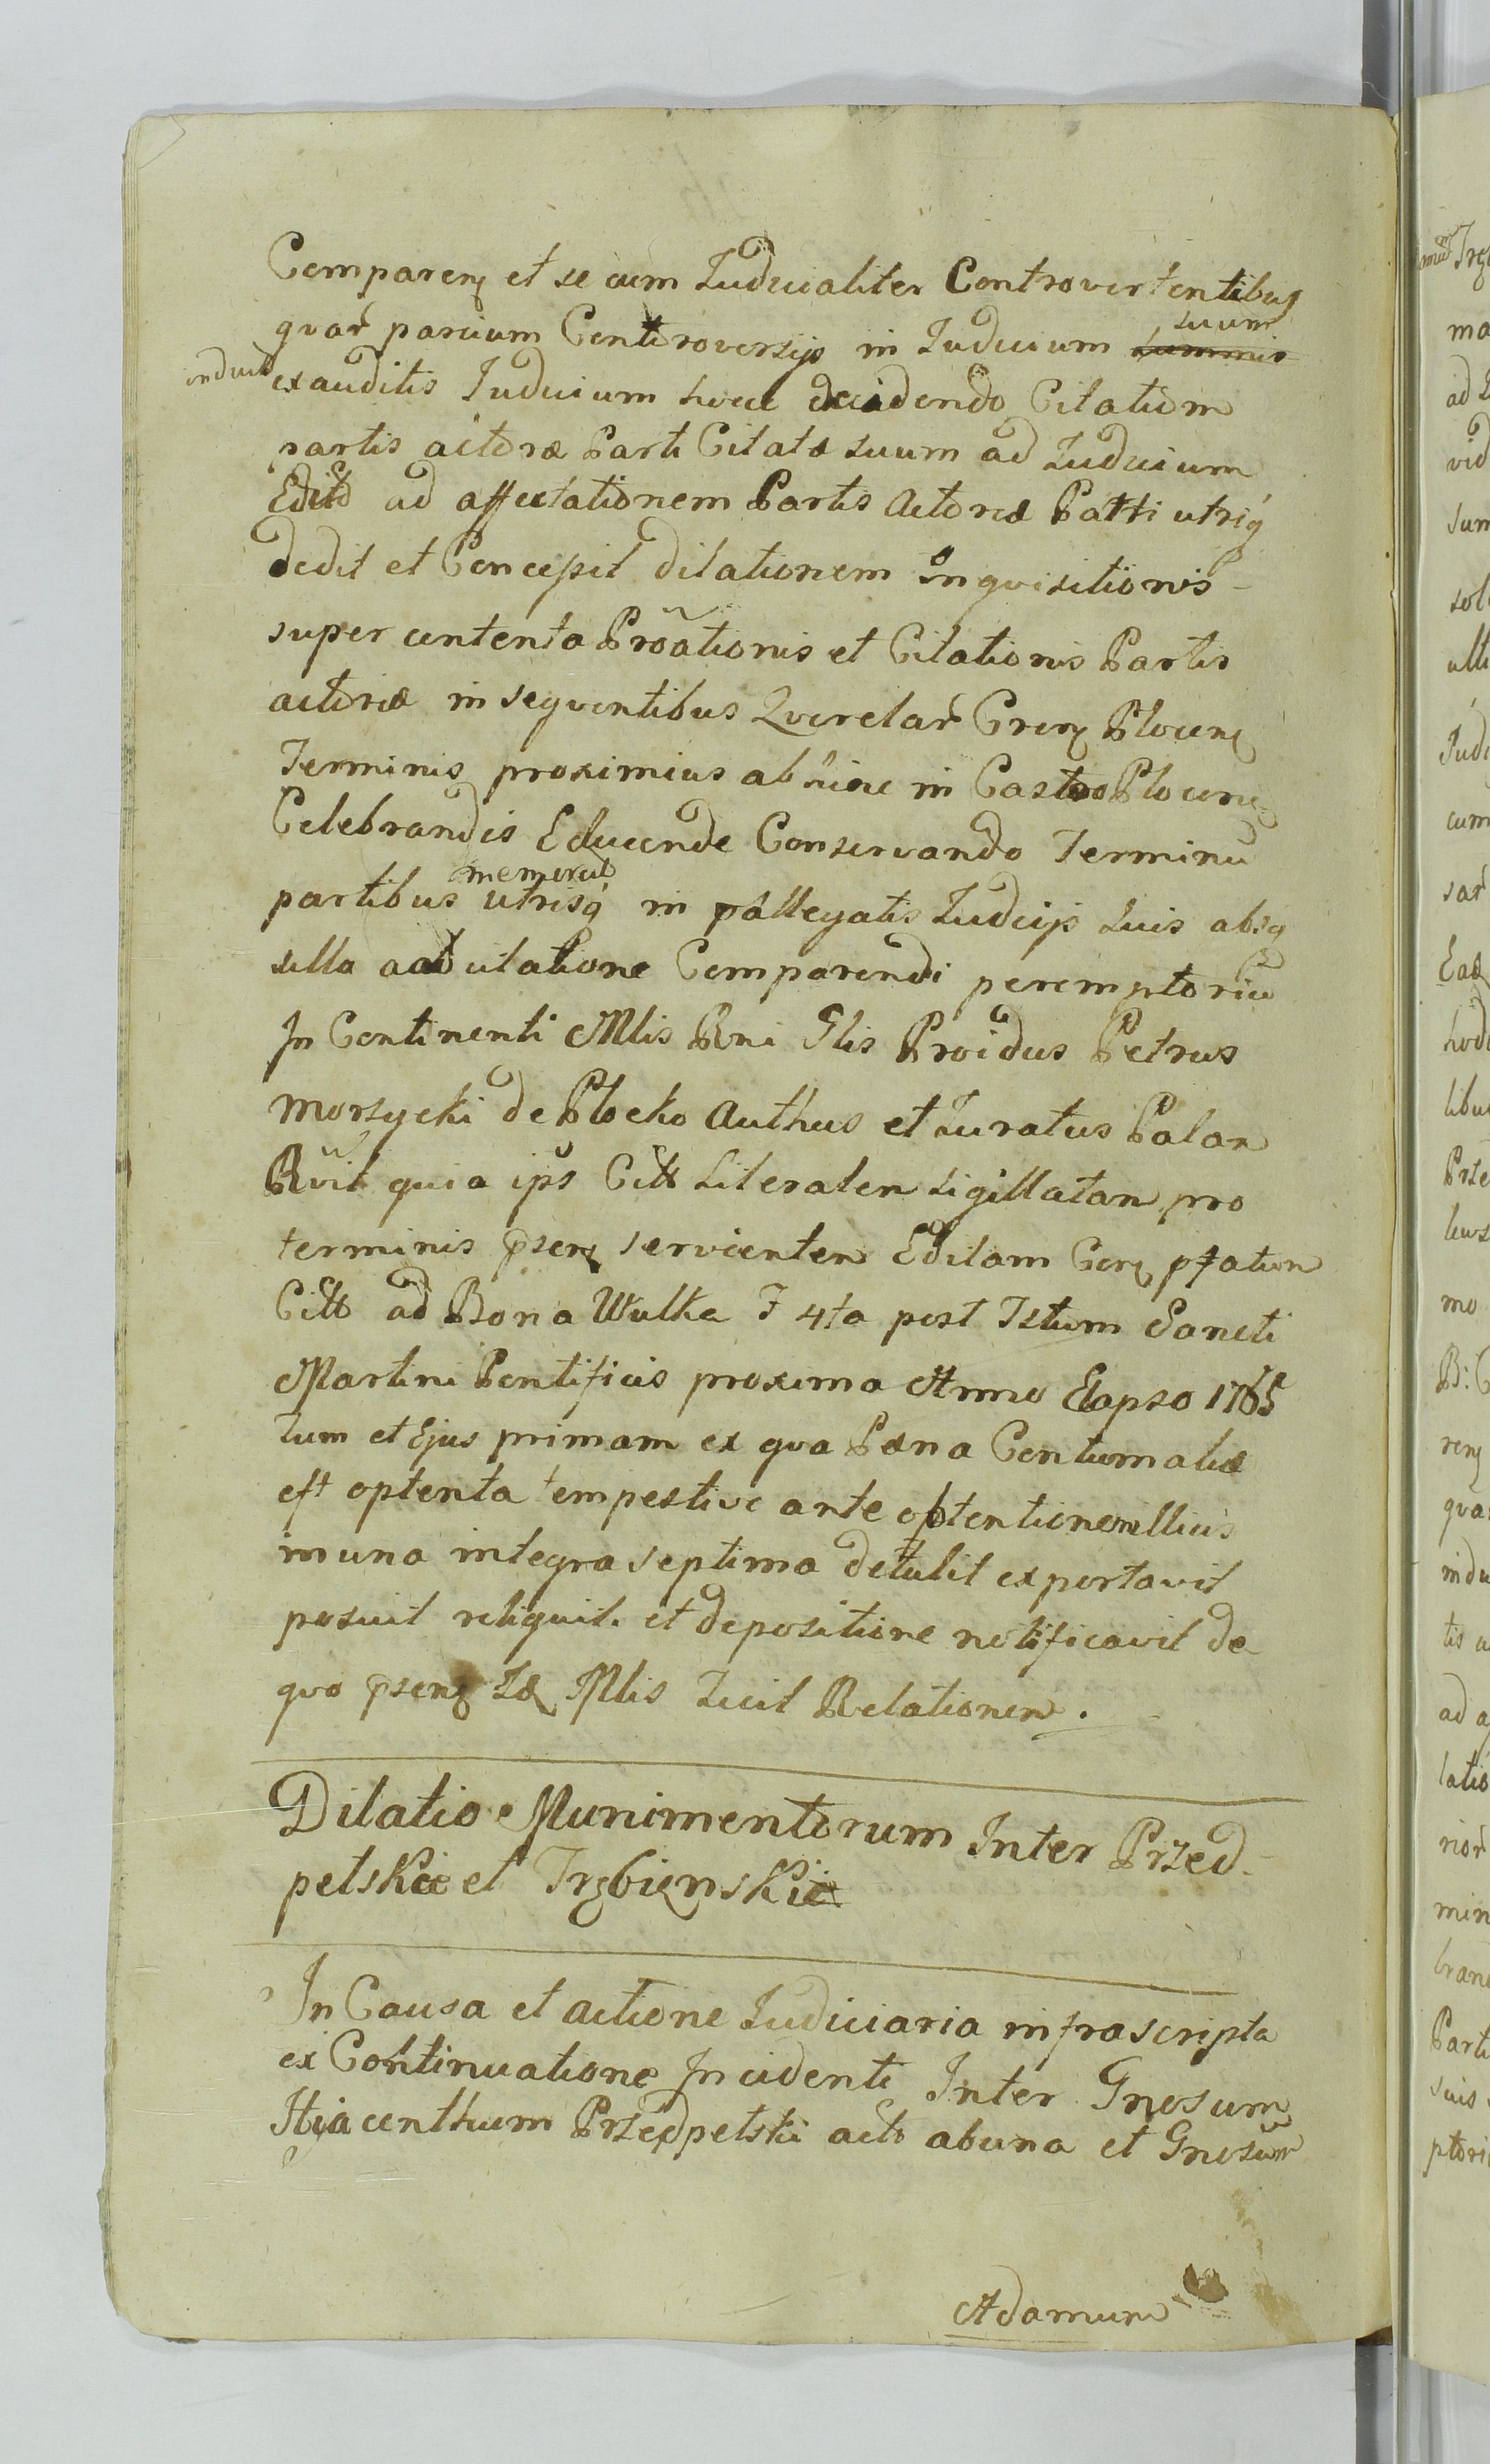 Comparenȝ et se cum Iudicialiter Controvertentibus
quar̃ parcium Controversijs in Iudicium suum
induct exauditis Iudicium hocce decidendo Citatiom
partis actoræ Parti Citatæ suum ad Iudicium
Edita ad affectationem Partis Actoreæ Parti utriq́
dedit et Concessit dilationem Inquisitionis -
super contenta Prõationis et Citationis Partis
actoreæ in sequentibus Querelar̃ Grenȝ Plocenȝ
Terminis proximius abhinc in Castro Plocenȝ
Celebrandis Educende Conservando Terminũ
partibus memorat utrisq́ in pallegatis Iudicijs suis absq́
ulla adcitatione Comparendi peremptoriũ
In Continenti Mlis Rni Glis Proidus Petrus
Morzycki de Plocko Authus et Iuratus Palam
Rĩvit quia ips Citt Literalem Sigillatam pro
terminis p̃senȝ servientem Editam Corȝ pfatum
Citt ad Bona Wulka F 4ta post Fstum Sancti
Martini Pontificis proxima Anno Elapso 1765
tum et Ejus primam ex qva Pæna Contumatiæ
est optenta tempestive ante optentionem illius
in una integra septima detulit exportavit
posuit reliquit. et depositione notificavit de
quo p̃senȝ Idȝ Mlis fecit Relationem.
Dilatio Munimentorum Inter Przed-
pelskie et Trębięnskie
In Causa et actione Iudiciaria infrascripta
ex Continuatione Incidenti Inter Gnosum
Hiacenthum Przedpelski acto abuna et Gnosum
Adamum